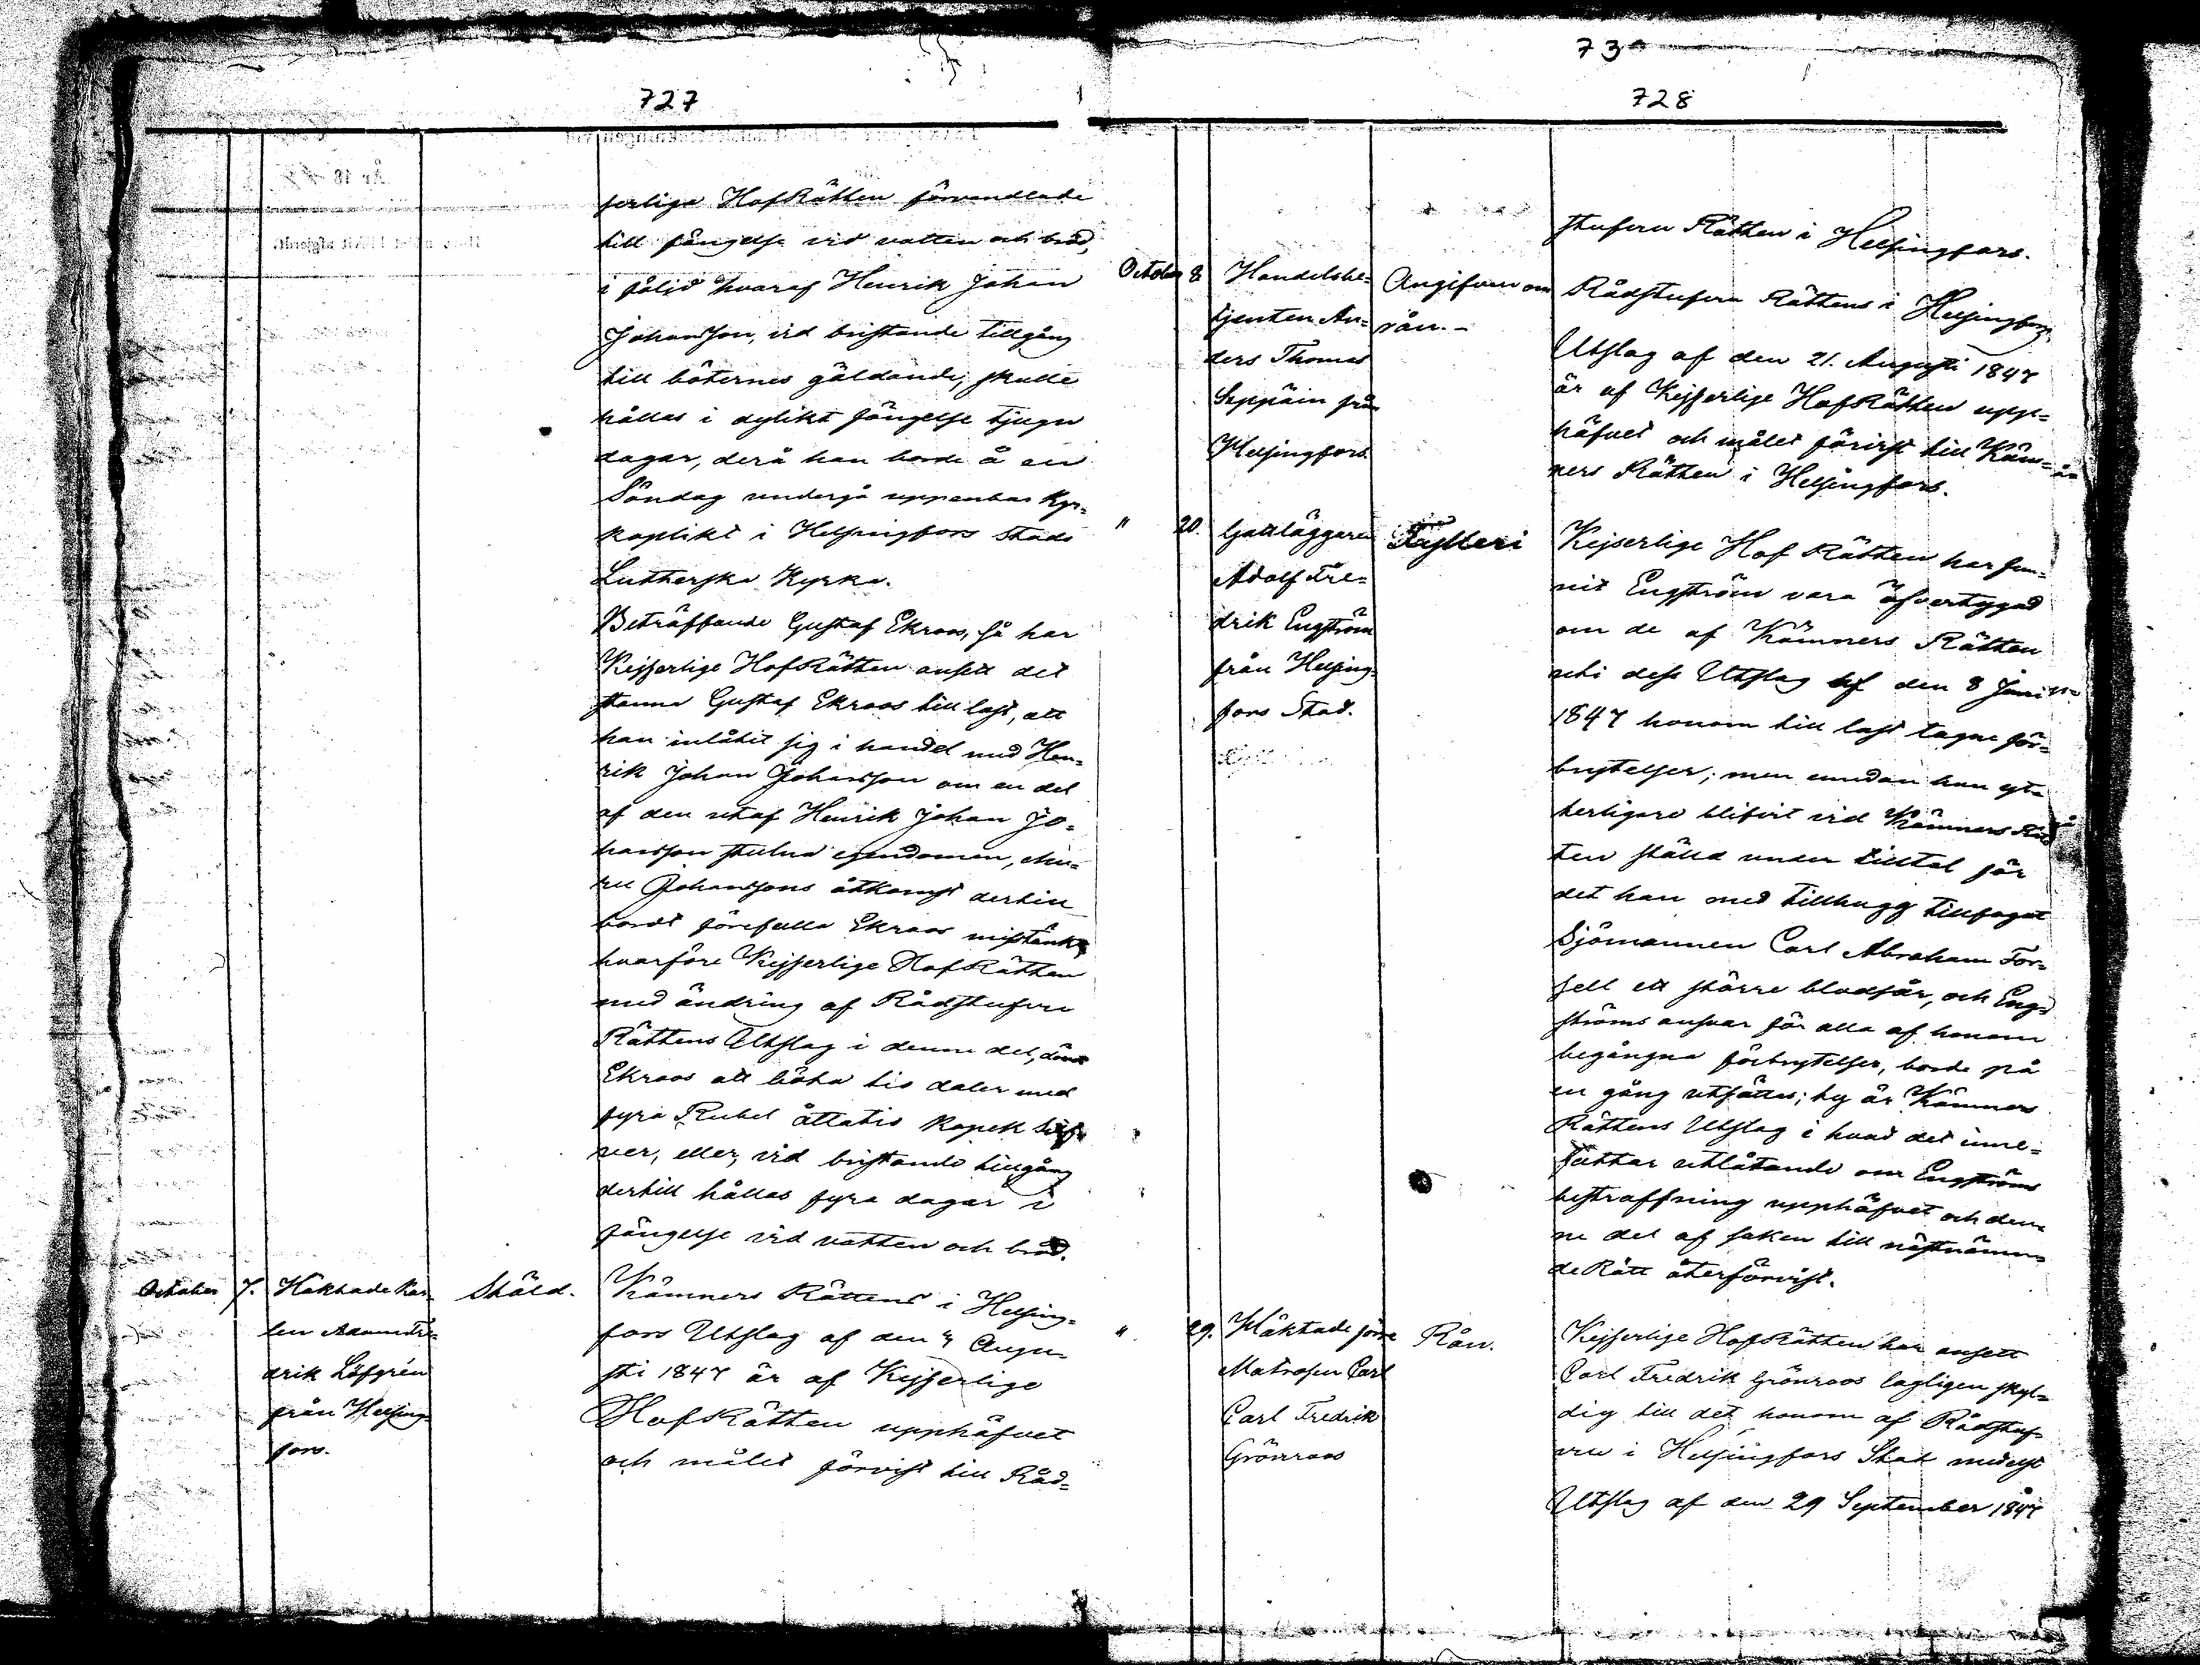 730
727
serliga HofRätten förvandlade
till fängelse vid vatten och bröd,
i följd hvaraf Henrik Johan
Johansson, vid bristande tillgång
till böternes gäldande, skulle
hållas i dylikt fängelse tjugu
dagar, derå han borde å en
Söndag undergå uppenbar Kyr-
koplikt i Helsingfors Stads
Lutherska Kyrka.
Beträffande Gustaf Ekroos, så har
Kejserlige HofRätten ansett det
stanna Gustaf Ekroos till last, att
han inlåtit sig i handel med Hen-
rik Johan Johansson om en del
af den utaf Henrik Johan Jo-
hansson stulna egendomen,
Johanssons åtkomst dertill
bordt förefalla Ekroos misstänkt
hvarföre Kejserlige HofRätten
med ändring af Rådstufvu
Rättens Utslag i denna del, dömt
Ekroos att böta tio daler med
fyra Rubel åttatio Kopek Silf-
ver, eller, vid bristande tillgång
dertill hållas fyra dagar i
fängelse vid vatten och bröd.
October 7. Häktade Kar-
len Adam Fre-
drik Löfgrén
från Helsing-
fors.
Stöld.
Kämners Rättens i Helsing-
fors Utslag af den 4 Augu-
sti 1847 är af Kejserlige
HofRätten upphäfvet
och målet förvist till Råd-
728
stufvu Rätten i Helsingfors.
October 8 Handelsbe-
tjenten An-
ders Thomas
Seppäin från
Helsingfors.
Angifven om
rån.-
Rådstufvu Rättens i Helsingfors
Utslag af den 21. Augusti 1847
är af Kejserlige HofRätten upp-
häfvet och målet förvist till Käm-
ners Rätten i Helsingfors.
" 20. Gattläggaren
Adolf Fre-
drik Engström
från Helsing-
fors Stad.
Fylleri
Kejserlige Hof Rätten har fun-
nit Engström vara öfvertygad
om de af Kämners Rätten
uti dess Utslag af den 8 Junii
1847 honom till last tagne för-
brytelser; men emedan han yt-
terligare blifvit vid Kämners Rät-
ten ställd under tilltal för
det han med tillhugg tillfogat
Sjömannen Carl Abraham For-
sell ett större blodsår, och Eng-
ströms ansvar för alla af honom
begångna förbrytelser, borde på
en gång utsättas; ty är Kämners
Rättens Utslag i hvad det inne-
fattar utlåtande om Engströms
bestraffning upphäfvet och den-
na del af saken till nästnämn-
de Rätt återförvist.
" 29. Häktade förre
Matrosen Carl
Carl Fredrik
Grönroos
Rån.
Kejserlige HofRätten har ansett
Carl Fredrik Grönroos lagligen skyl-
dig till det honom af Rådstuf-
vun i Helsingfors Stad medelst
Utslag af den 29 September 1847